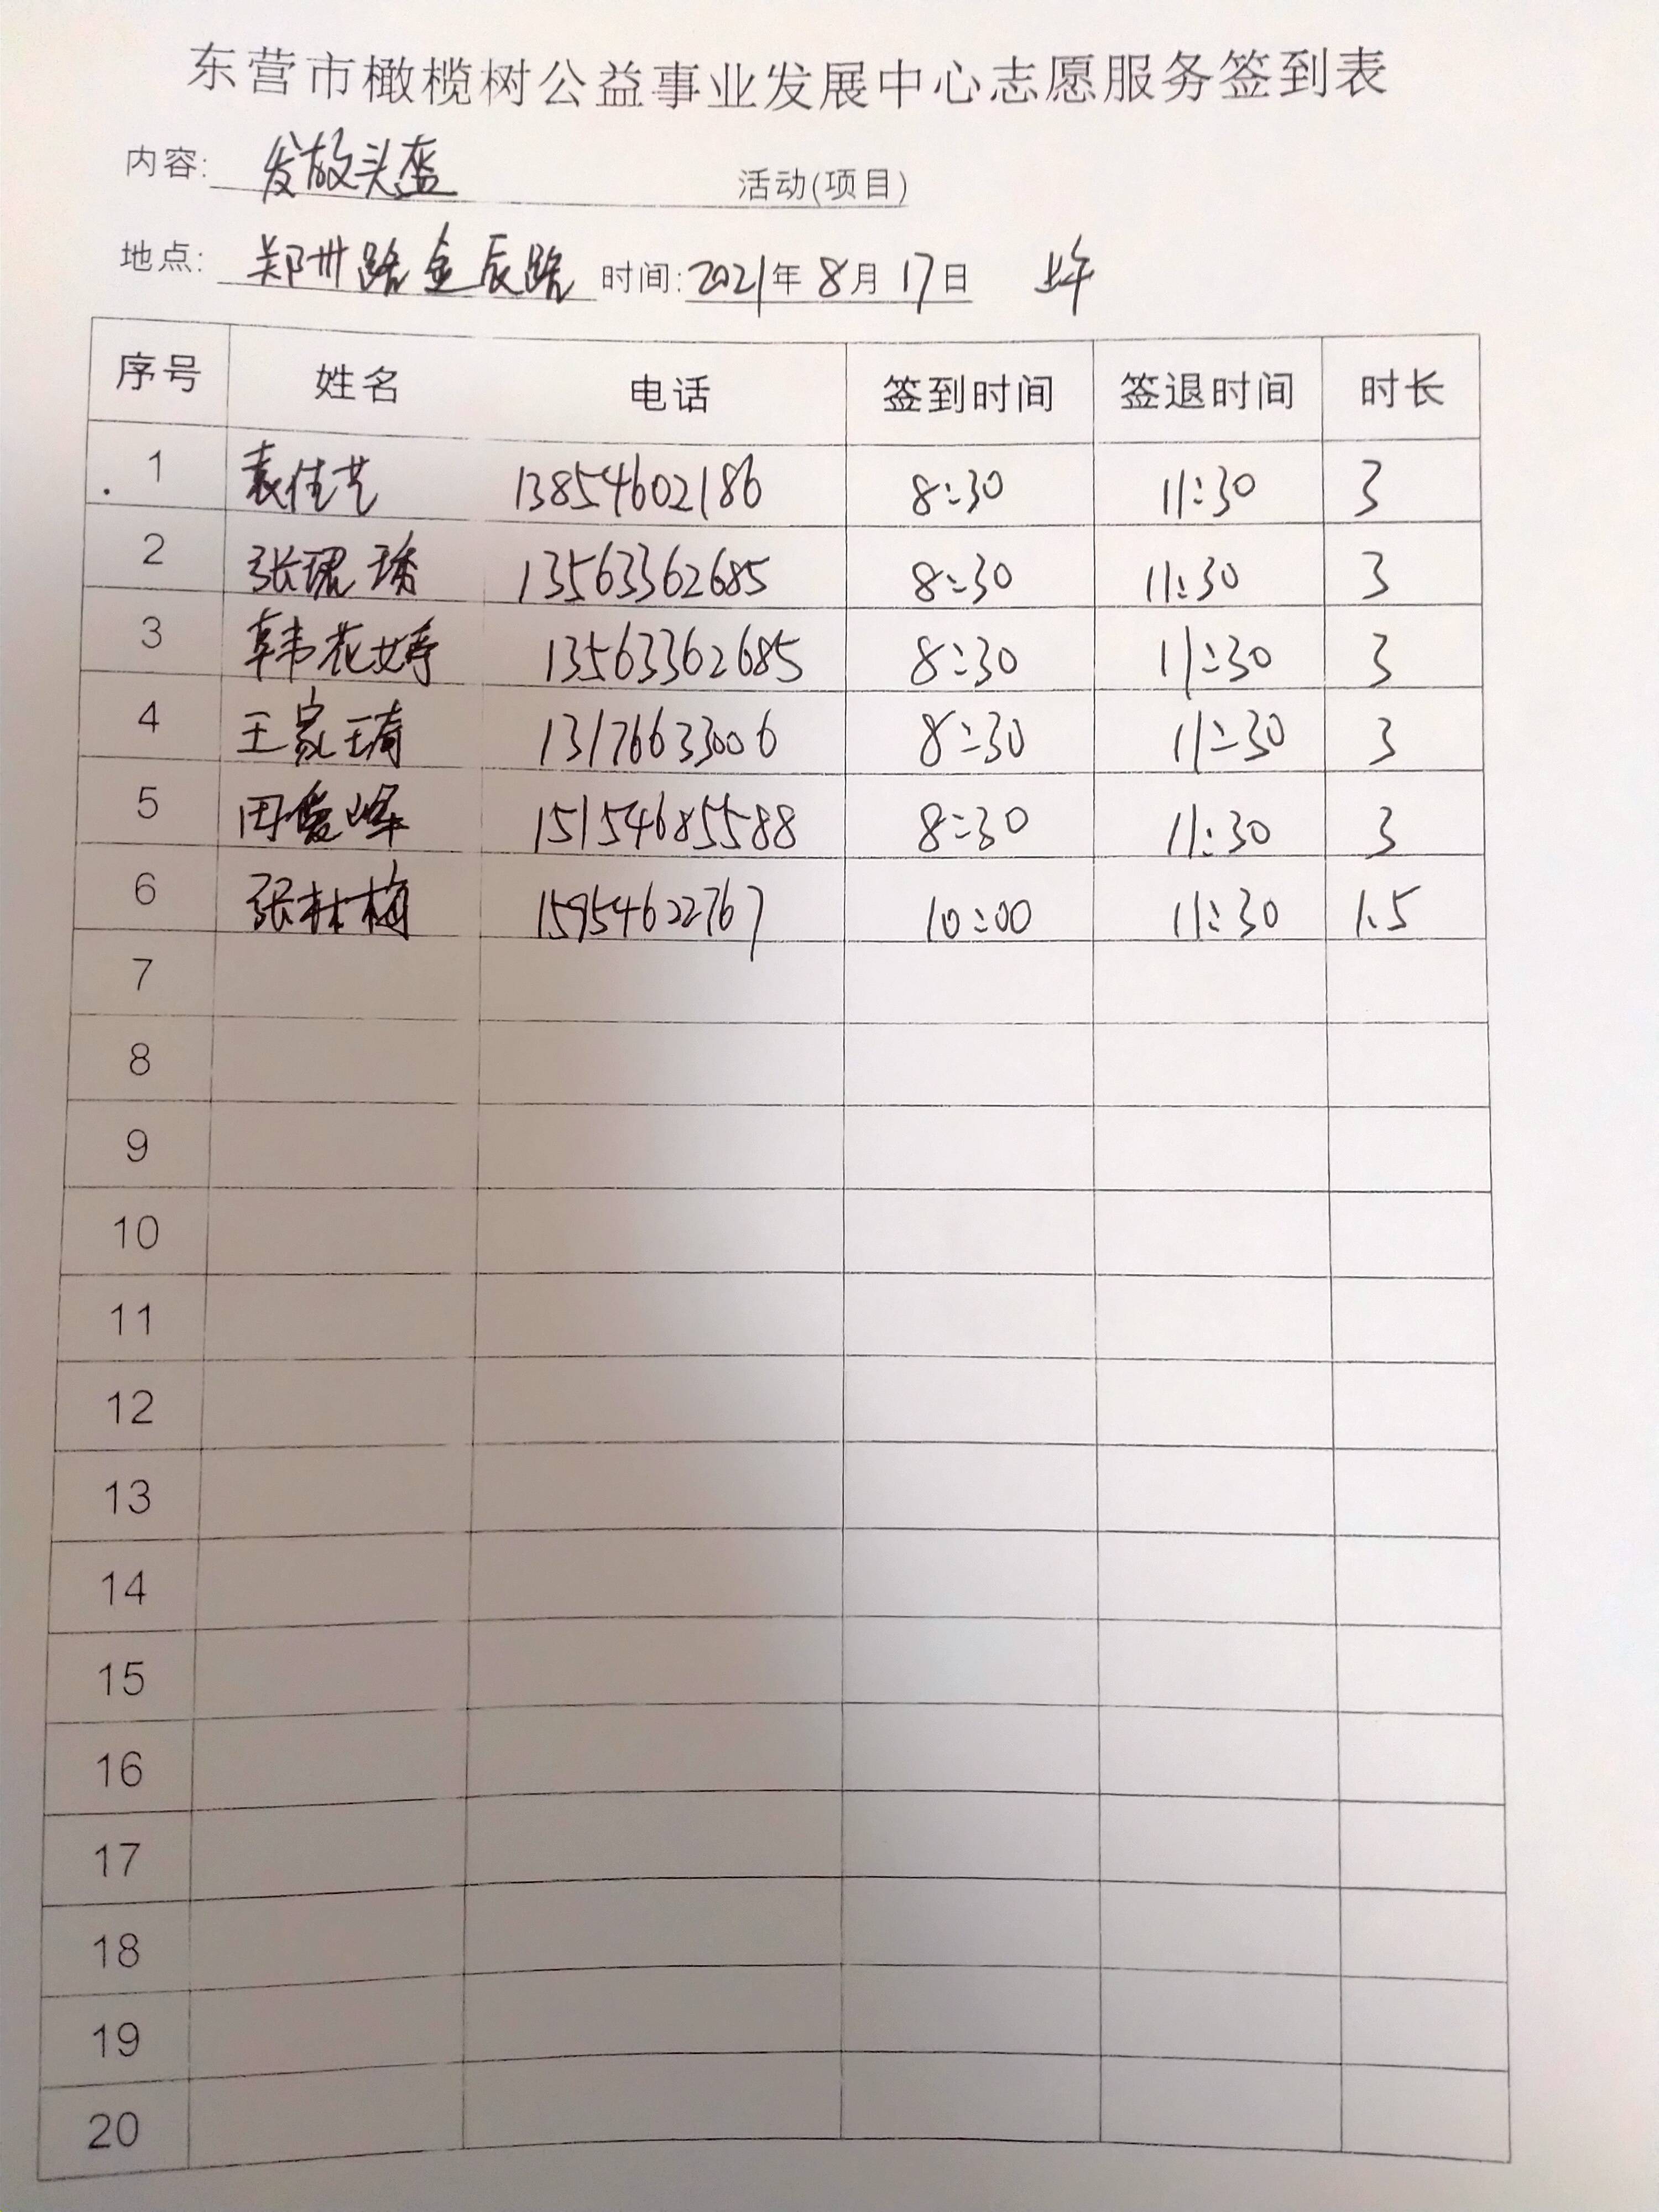 东营市橄榄树公益事业发展中心志愿服务签到表
内容: 发放头盔 活动(项目)
地点: 郑州路金辰路 时间: 2021年 8月 17日 上午
序号 姓名 电话 签到时间 签退时间 时长
1 袁佳艺 13854602186 8:30 11:30 3
2 张琨琇 13563362685 8:30 11:30 3
3 韩花婷 13563362685 8:30 11:30 3
4 王家琦 13176633006 8:30 11:30 3
5 田爱峰 15154685588 8:30 11:30 3
6 张林梅 15954622767 10:00 11:30 1.5
7
8
9
10
11
12
13
14
15
16
17
18
19
20